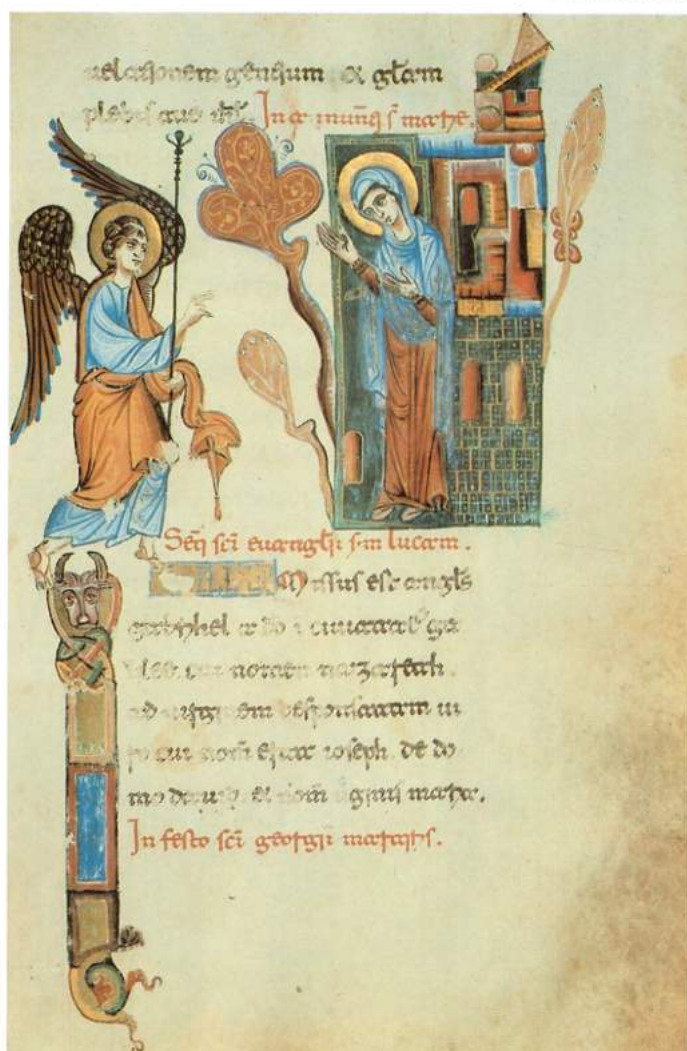 uelationem gentium & glam
plebis tue isrl. In anunti s marie.
Seq sci euanglii s·m lucam.
Missus est angls
gabrihel a do i ciuitate ga
lilee cui nomen nazareth.
ad uirginem desponsatam ui
ro cui nom erat ioseph. de do
mo dauid. et nom uginis maria.
In festo sci georgii martiris.